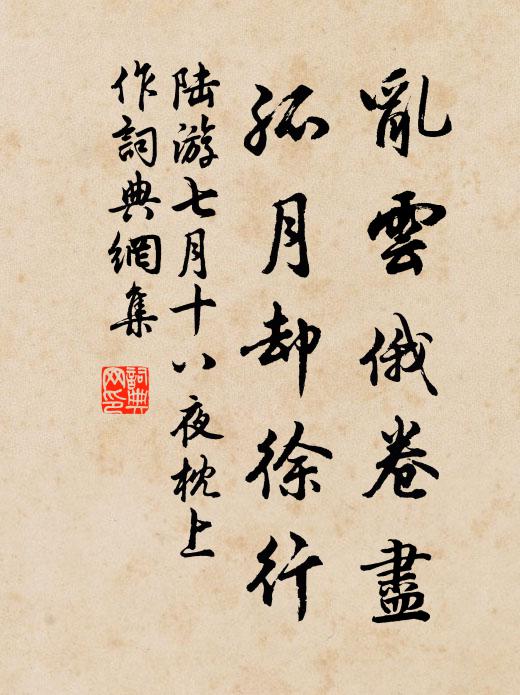 亂雲俄卷盡
孤月却徐行
陸游七月十八夜枕上
作詞典網集
詞典
网印